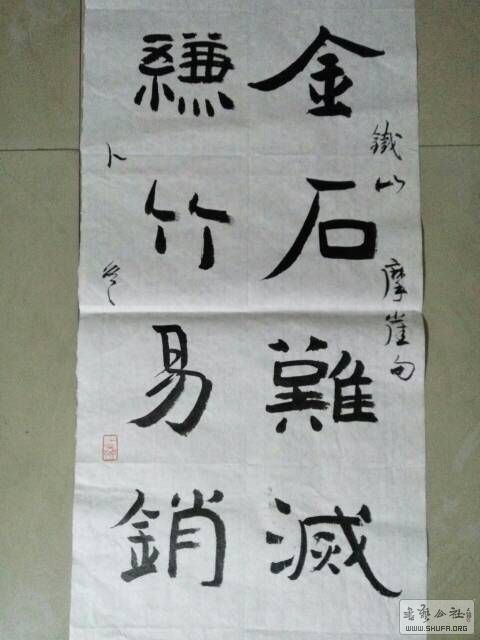 金石難滅
縑竹易銷
鐵山 摩崖句
卜
WWW.SHUFA.ORG